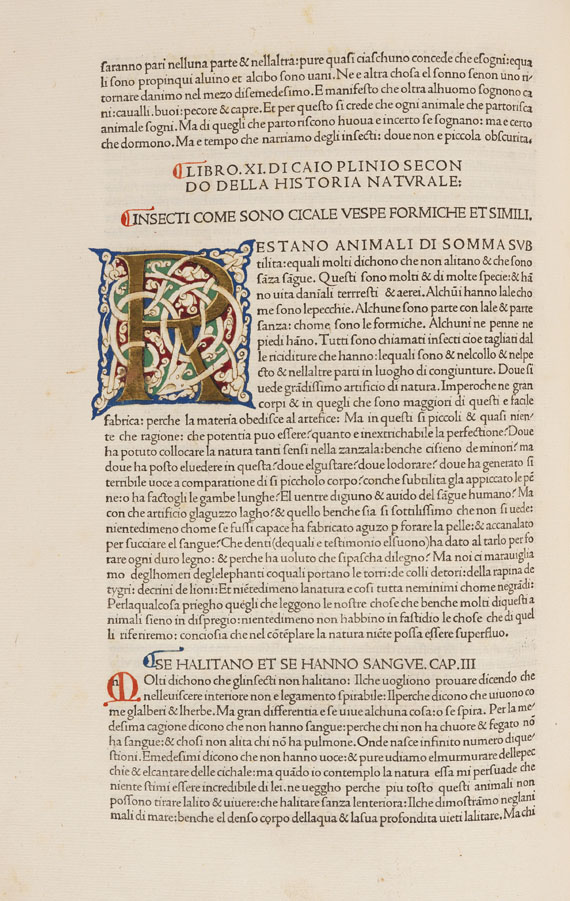 saranno pari nelluna parte & nellaltra: pure quasi ciaschuno concede che esogni: equa
li sono propinqui aluino et alcibo sono uani. Ne e altra chosa el sonno senon uno ri
tornare danimo nel mezo disemedesimo. E manifesto che oltra alhuomo sognono ca
ni: caualli. buoi: pecore & capre. Et per questo si crede che ogni animale che partorisca
animale sogni. Ma di quegli che partoriscono huoua e incerto se sognano: ma e certo
che dormono. Ma e tempo che narriamo degli insecti: doue non e piccola obscurita.
LIBRO. XI. DI CAIO PLINIO SECON
DO DELLA HISTORIA NATVRALE:
INSECTI COME SONO CICALE VESPE FORMICHE ET SIMILI.
RESTANO ANIMALI DI SOMMA SVB
tilita: equali molti dichono che non alitano & che sono
sāza sāgue. Questi sono molti & di molte specie: & hā
no uita daniali terrresti & aerei. Alchūi hanno lale cho
me sono lepecchie. Alchune sono parte con lale & parte
sanza: chome sono le formiche. Alchuni ne penne ne
piedi hāno. Tutti sono chiamati insecti cioe tagliati dal
le riciditure che hanno: lequali sono & nelcollo & nelpe
cto & nellaltre parti in luogho di congiunture. Doue si
uede grādissimo artificio di natura. Imperoche ne gran
corpi & in quegli che sono maggiori di questi e facile
fabrica: perche la materia obedisce al artefice: Ma in questi si piccoli & quasi nien
te che ragione: che potentia puo essere? quanto e inextrichabile la perfectione? Doue
ha potuto collocare la natura tanti sensi nella zanzala: benche cisieno de minori? ma
doue ha posto eluedere in questa? doue elgustare? doue lodorare? doue ha generato si
terribile uoce a comparatione di si piccholo corpo? conche subtilita gla appiccato le pē
ne: o ha factogli le gambe lunghe? El uentre digiuno & auido del sāgue humano? Ma
con che artificio glaguzzo lagho? & quello benche sia si sottilissimo che non si uede:
nientedimeno chome se fussi capace ha fabricato aguzo p forare la pelle: & accanalato
per succiare el sangue? Che denti (dequali e testimonio elsuono) ha dato al tarlo per fo
rare ogni duro legno: & perche ha uoluto che sipascha dilegno? Ma noi ci marauiglia
mo deglhomeri deglelephanti coquali portano le torri: de colli detori: della rapina de
tygri: decrini de lioni: Et niētedimeno lanatura e cosi tutta neminimi chome negrādi:
Perlaqualcosa priegho quegli che leggono le nostre chose che benche molti diquesti a
nimali sieno in dispregio: nientedimeno non habbino in fastidio le chose che di quel
li riferiremo: conciosia che nel cōtēplare la natura niēte possa essere superfluo.
SE HALITANO ET SE HANNO SANGVE. CAP. III
MOlti dichono che glinsecti non halitano: Ilche uogliono prouare dicendo che
nelleuiscere interiore non e legamento spirabile: Ilperche dicono che uiuono co
me glalberi & lherbe. Ma gran differentia e se uiue alchuna cosa: o se spira. Per la me
desima cagione dicono che non hanno sangue: perche chi non ha chuore & fegato nō
ha sangue: & chosi non alita chi nō ha pulmone. Onde nasce infinito numero di que
stioni. Emedesimi dicono che non hanno uoce: & pure udiamo elmurmurare dellepec
chie & elcantare delle cichale: ma quādo io contemplo la natura essa mi persuade che
niente stimi essere incredibile di lei. ne ueggho perche piu tosto questi animali non
possono tirare lalito & uiuere: che halitare sanza lenteriora: Ilche dimostrāmo neglani
mali di mare: benche el denso corpo dellaqua & lasua profondita uieti lalitare. Ma chi